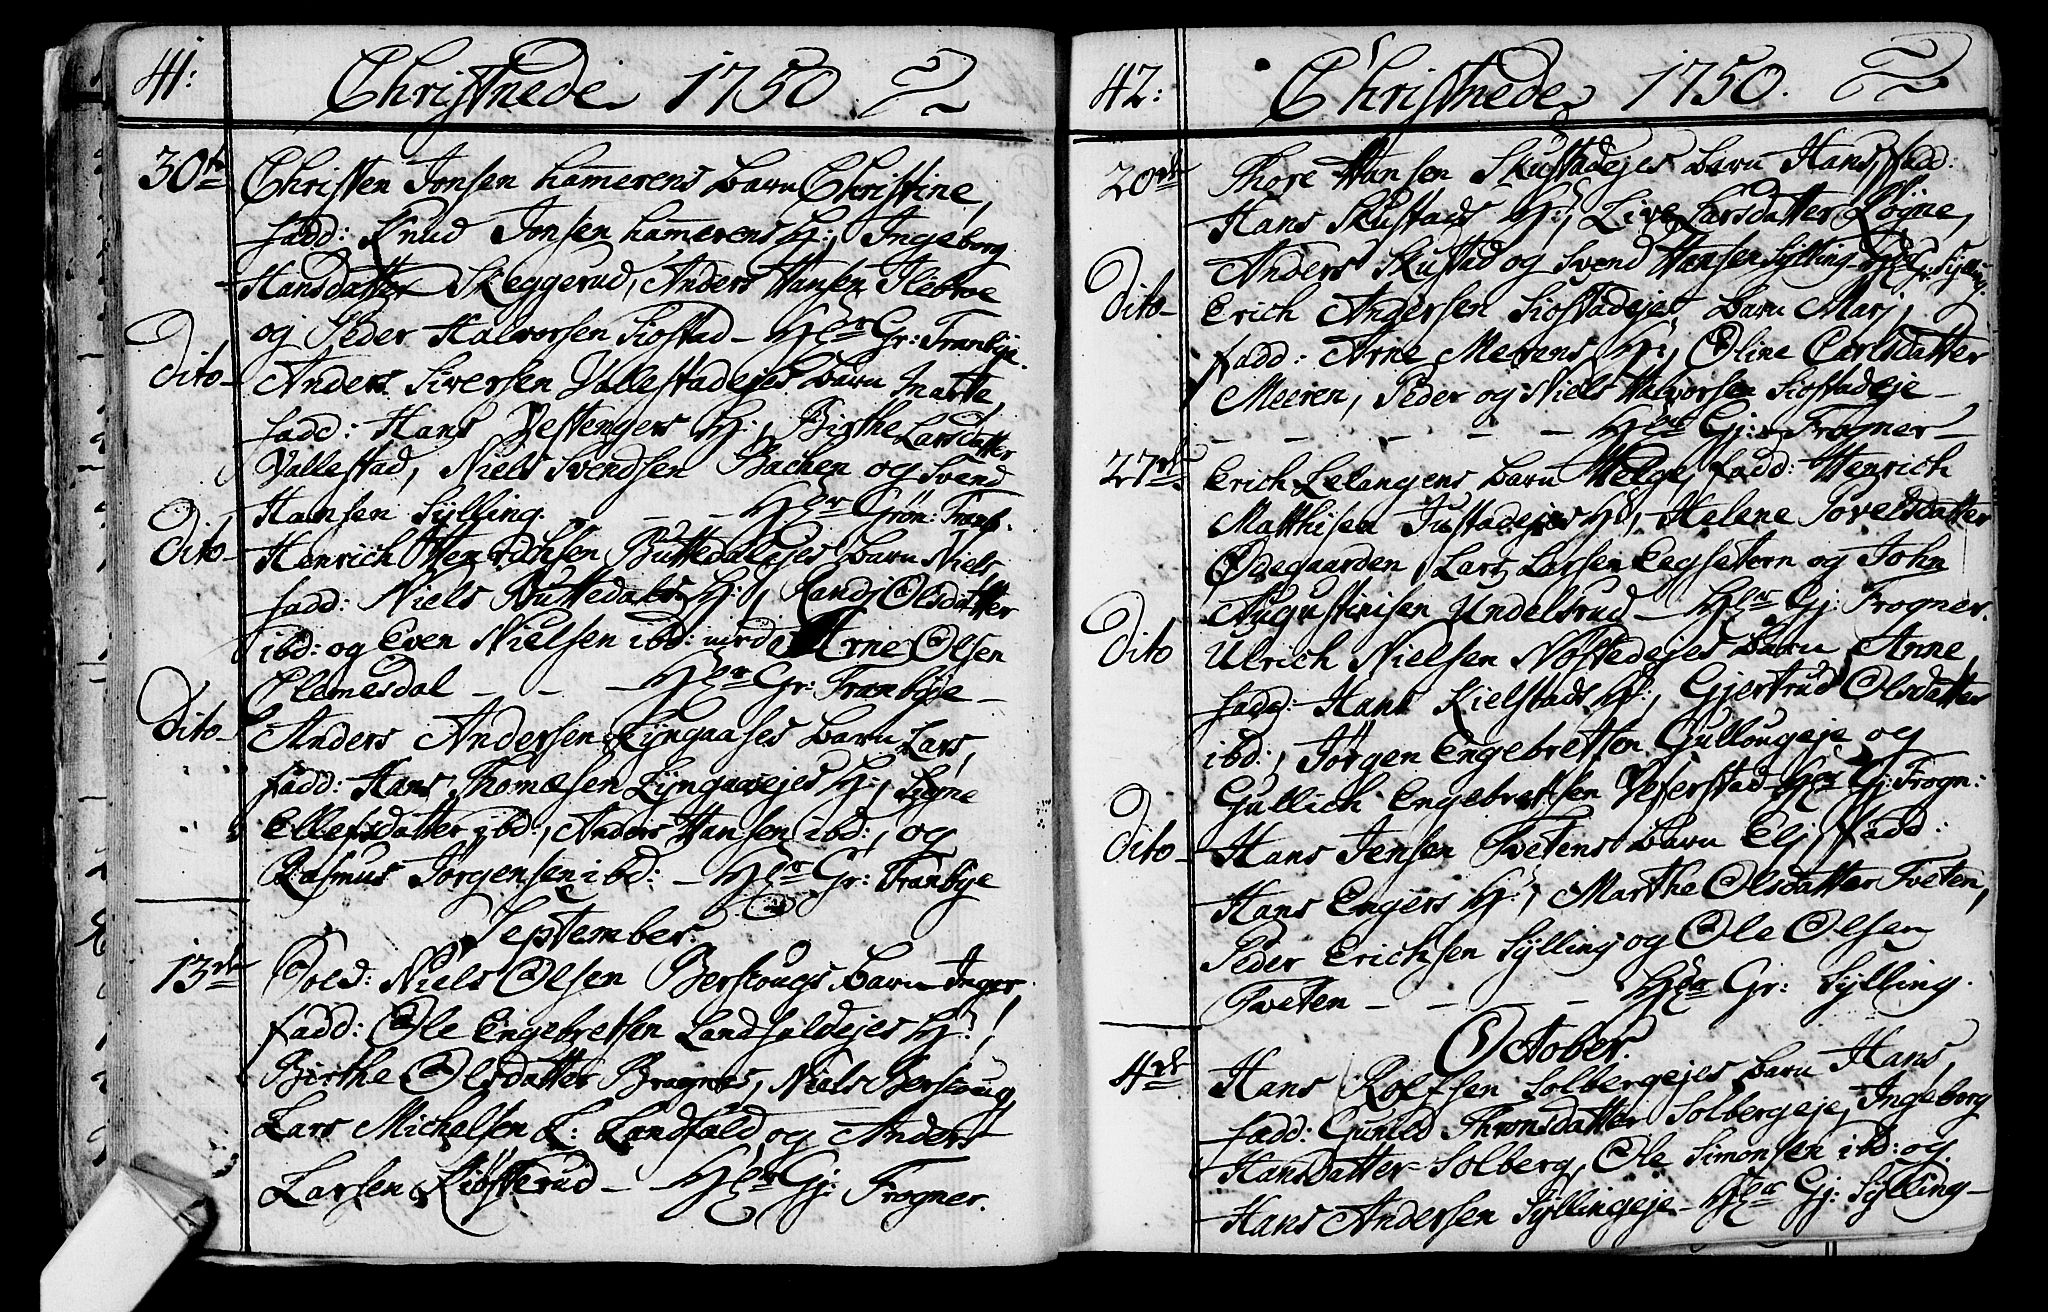 41:
Christnede 1750
30te Christen Jonsen hamerens barn Christine,
fadd: Knud Jonsen hamerens H:, Ingeborg
Hansdatter Skeggerud, Anders Hansen Ilebroe
og Peder Halvorsen Siostad - Hr Gr: Tranbye.
Dito- Anders Siversen Vallestadejes barn Marte,
fadd: Hans Vestengers H:, Birthe Larsdatter
Vallestad, Niels Svendsen Bachen og Svend
Hansen Sylling. - - Hr Grön: Tranb.
Dito- Henrich Henrichsen Buttedalejes barn Niels
fadd: Niels Buttedals H:, Randj Olsdatter
ibd: og Even Nielsen ibd: Arne Olsen
Clemesdal - - - Hr Gr: Tranbye -
Dito- Anders Andersen Lyngaases barn Lars,
fadd: Hans Thomæsen Lyngaasejes H:, Signe
Ellefsdatter ibd:, Anders Hansen ibd:, og
Rasmus Jörgensen ibd: - Hr Gr: Tranbye
September.
13de Sold: Niels Olsen Berskougs barn Inger
fadd: Ole Engebretsen Landfaldejes H:,
Birthe Olsdatter Bragnes, Niels Berskoug,
Lars Michelsen L: Landfald og Anders
Larsen Kiösterud - Hr Gj: Frogner.
42:
Christnede 1750.
20de Thore Hansen Skustadejes barn Hans, fadd:
Hans Skustads H:, Live Larsdatter Rögne,
Anders Skustad og Svend Hansen Sylling - Hr Gr: Sylling.
Dito- Erich Andersen Siostadejes barn Marj,
fadd: Arne Merens H:, Oline Carlsdatter
Meeren, Peder og Niels Halvorsen Siostadeje -
- - - - - - Hr Gj: Frogner -
27de Erich Lelangens barn Helge, fadd: Henrich
Matthisen Justadejes H:, Helene Povelsdatter
Ödegaarden, Lars Larsen Eegsetern og John
Augustinisen Undelsrud - Hr Gj: Frogner.
Dito Ulrich Nielsen Nöstedejes barn Anne,
fadd: Hans Kielstads H:, Gjertrud Olsdatter
ibd:, Jörgen Engebretsen Gullougeje og
Gullich Engebretsen Veferstad - Hr Gj: Frogn:
Dito- Hans Jensen Tvetens barn Elj, fadd:
Hans Engers H:, Marthe Olsdatter Tveten,
Peder Erichsen Sylling og Ole Olsen
Tveten - - - - Hr Gr: Sylling.
October.
4de Hans Rolfsen Solbergejes barn Hans,
fadd: Gunild Thronsdatter Solbergeje, Ingeborg
Hansdatter Solberg, Ole Simonsen ibd: og
Hans Andersen Syllingeje - Hr Gj: Sylling -